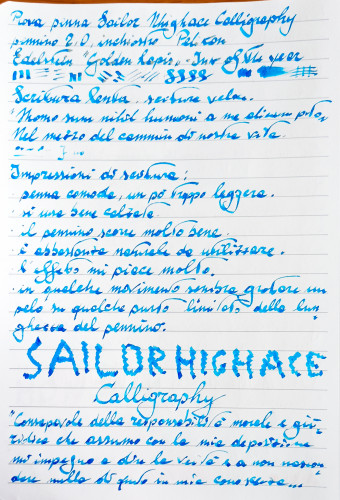 Prova penna Sailor Highace Calligraphy
pennino 2.0, inchiostro Pelikan
Edelstein "Golden Lapis", Ink of the year
Scrittura lenta, scrittura veloce.
"Homo sum nihil humani a me alienum puto.
Nel mezzo del cammin di nostra vita
Impressioni di scrittura:
· penna comoda, un po' troppo leggera.
· si usa bene calzata
· il pennino scorre molto bene.
· è abbastanza naturale da utilizzare.
· l'effetto mi piace molto.
· in qualche movimento sembra grattare un
pelo su qualche punto limitato della lun
ghezza del pennino.
SAILOR HIGHACE
Calligraphy
"Consapevole della responsabilità morale e giu-
ridica che assumo con la mia deposizione
mi impegno a dire la verità e a non nascon
dere nulla di quanto in mia conoscenza...